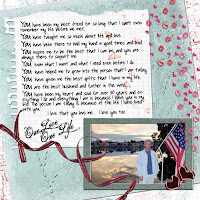 You have been my best friend for so long that I can't even
remember my life before we met.
You have taught me so much about life and love.
You have been there to hold my hand in good times and bad.
You inspire me to be the best that I can be, and you are
always there to support me.
You know what I want and what I need even before I do.
You have helped me to grow into the person that I am today.
You have given me the best gifts that I have in my life.
You are the best husband and father in the world.
You have been my heart and soul for over 30 years and
everything I do and everything I am is because I have you in my
life. The person I am today is because of the life I have lived
with you.
I love that you love me. I love you too.
One Love
One Life